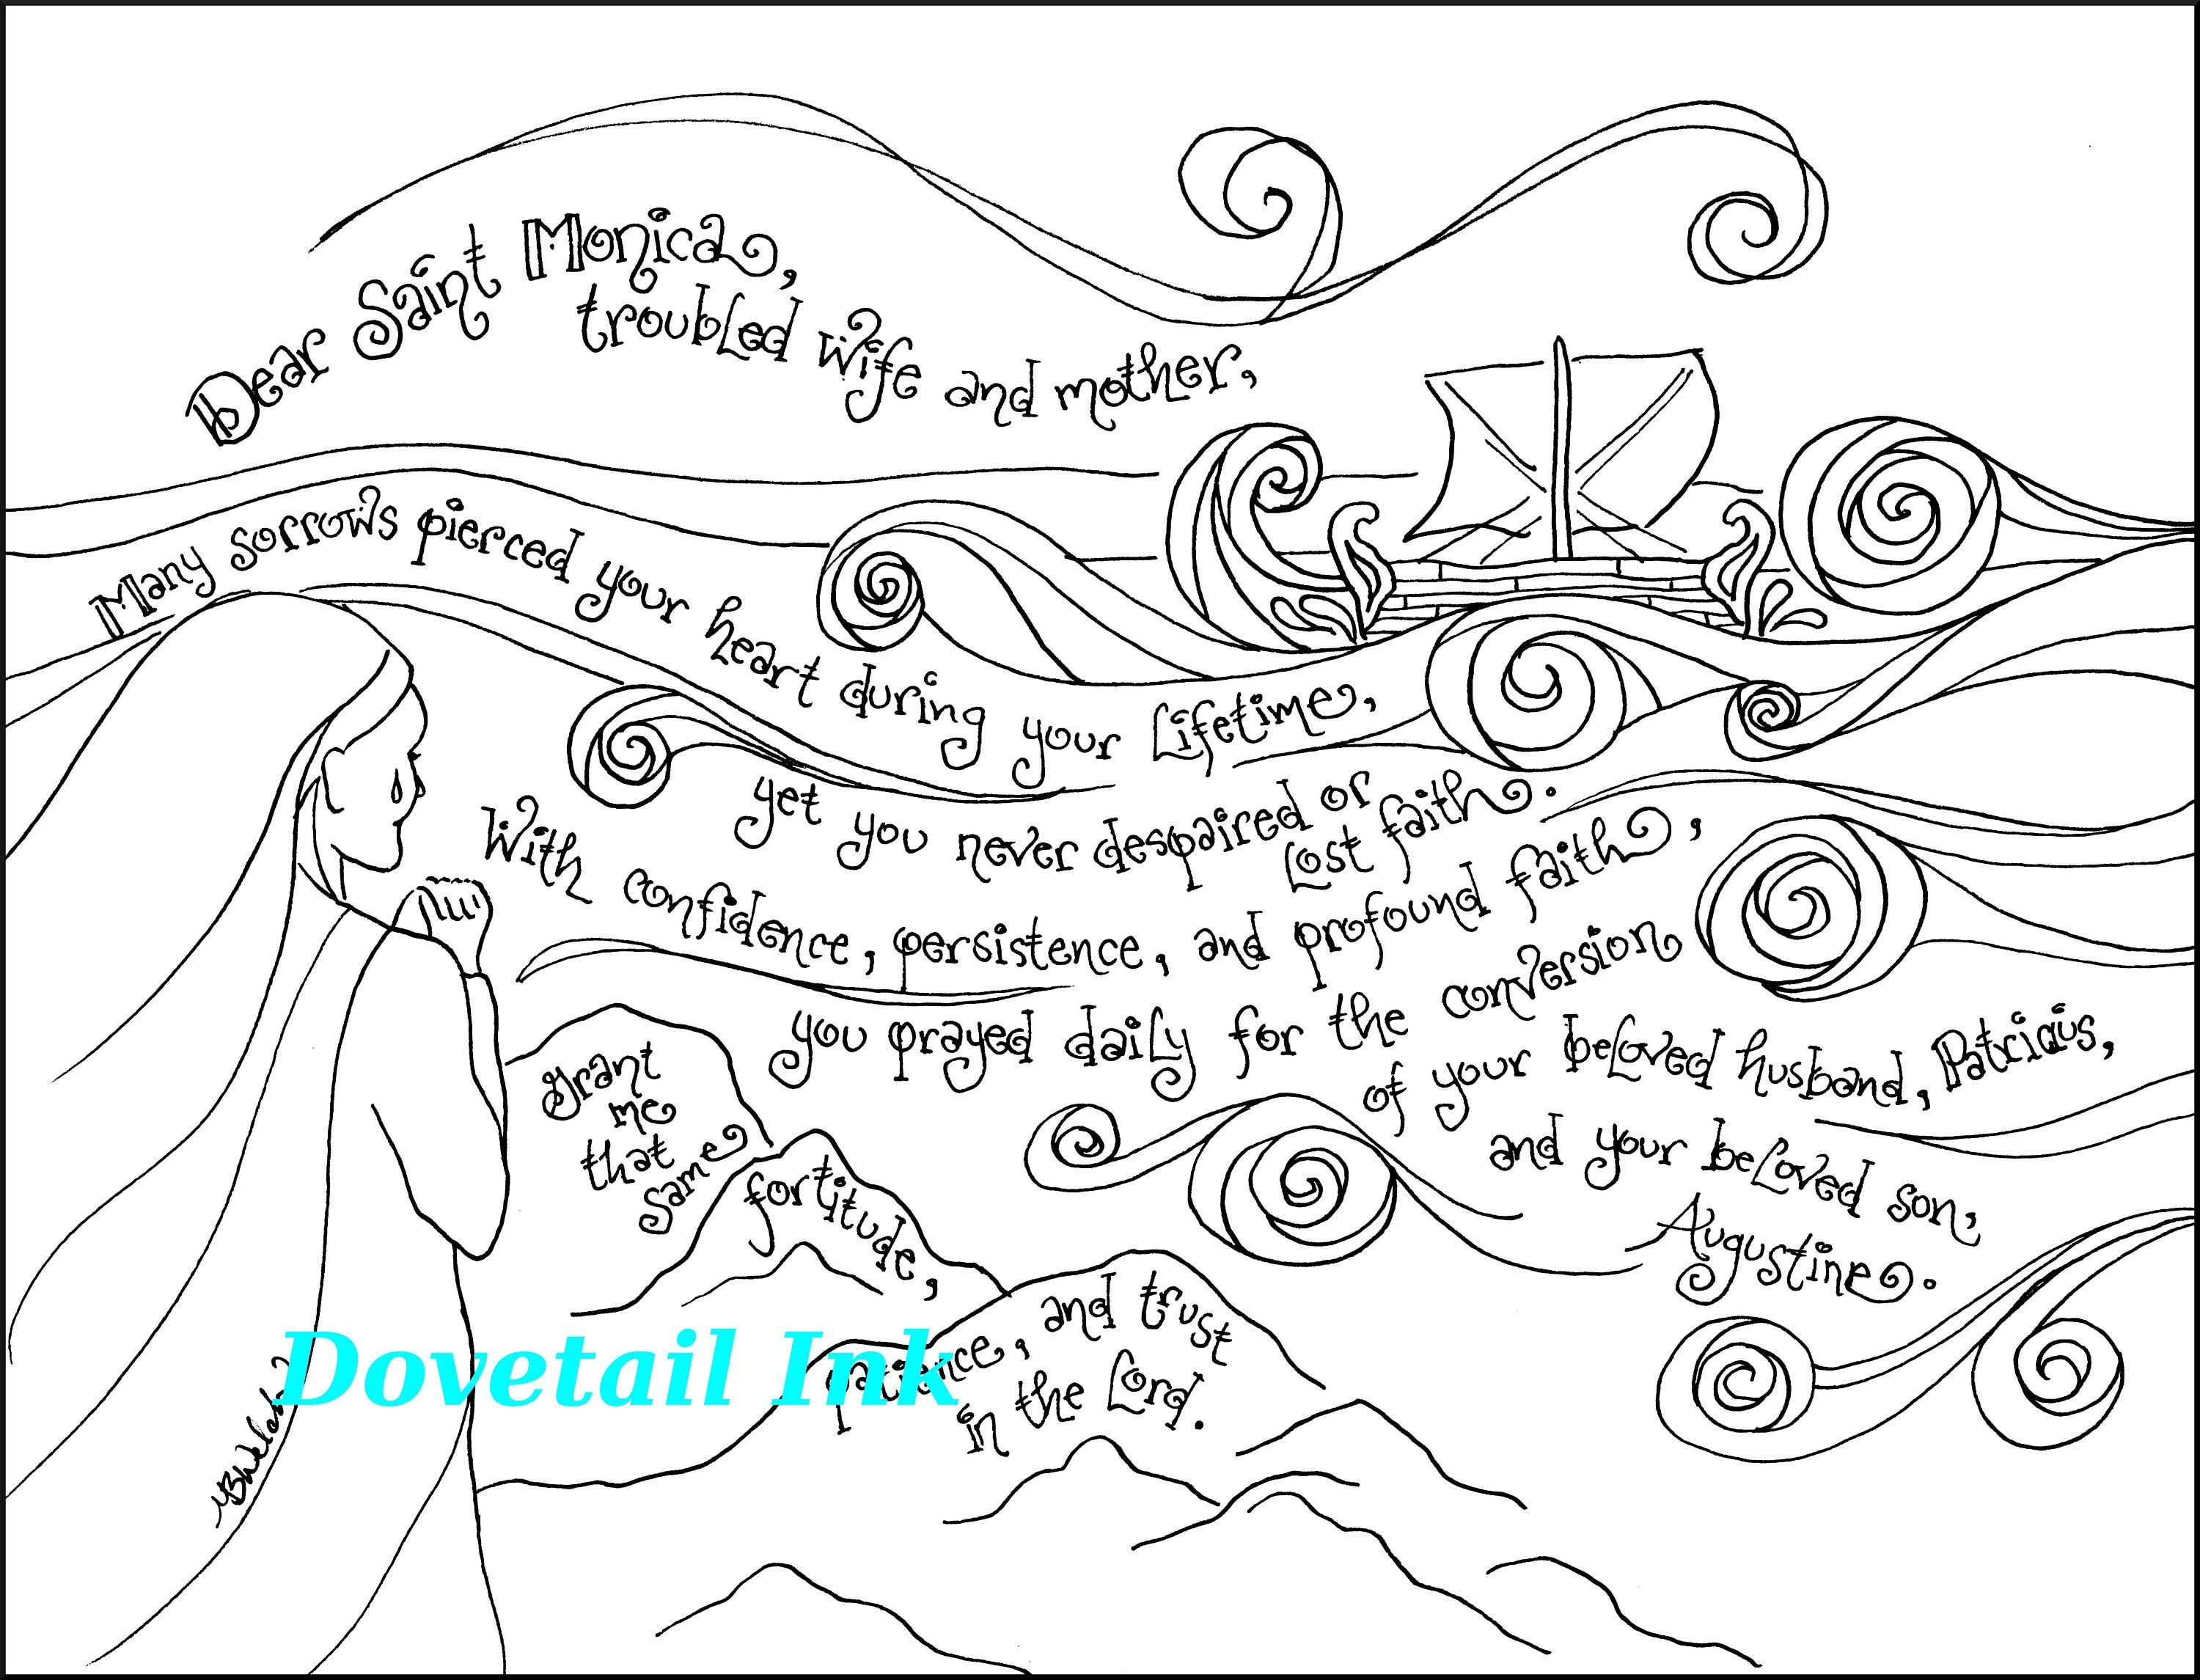 Dear Saint Monica,
troubled wife and mother,
Many sorrows pierced your heart during your Lifetime,
yet you never despaired or
Lost faith.
With confidence, persistence, and profound faith,
you prayed daily for the conversion
of your beloved husband, Patricius,
and your beloved son,
Augustine.
grant
me
that
same
fortitude,
patience, and trust
in the Lord.
Dovetail Ink